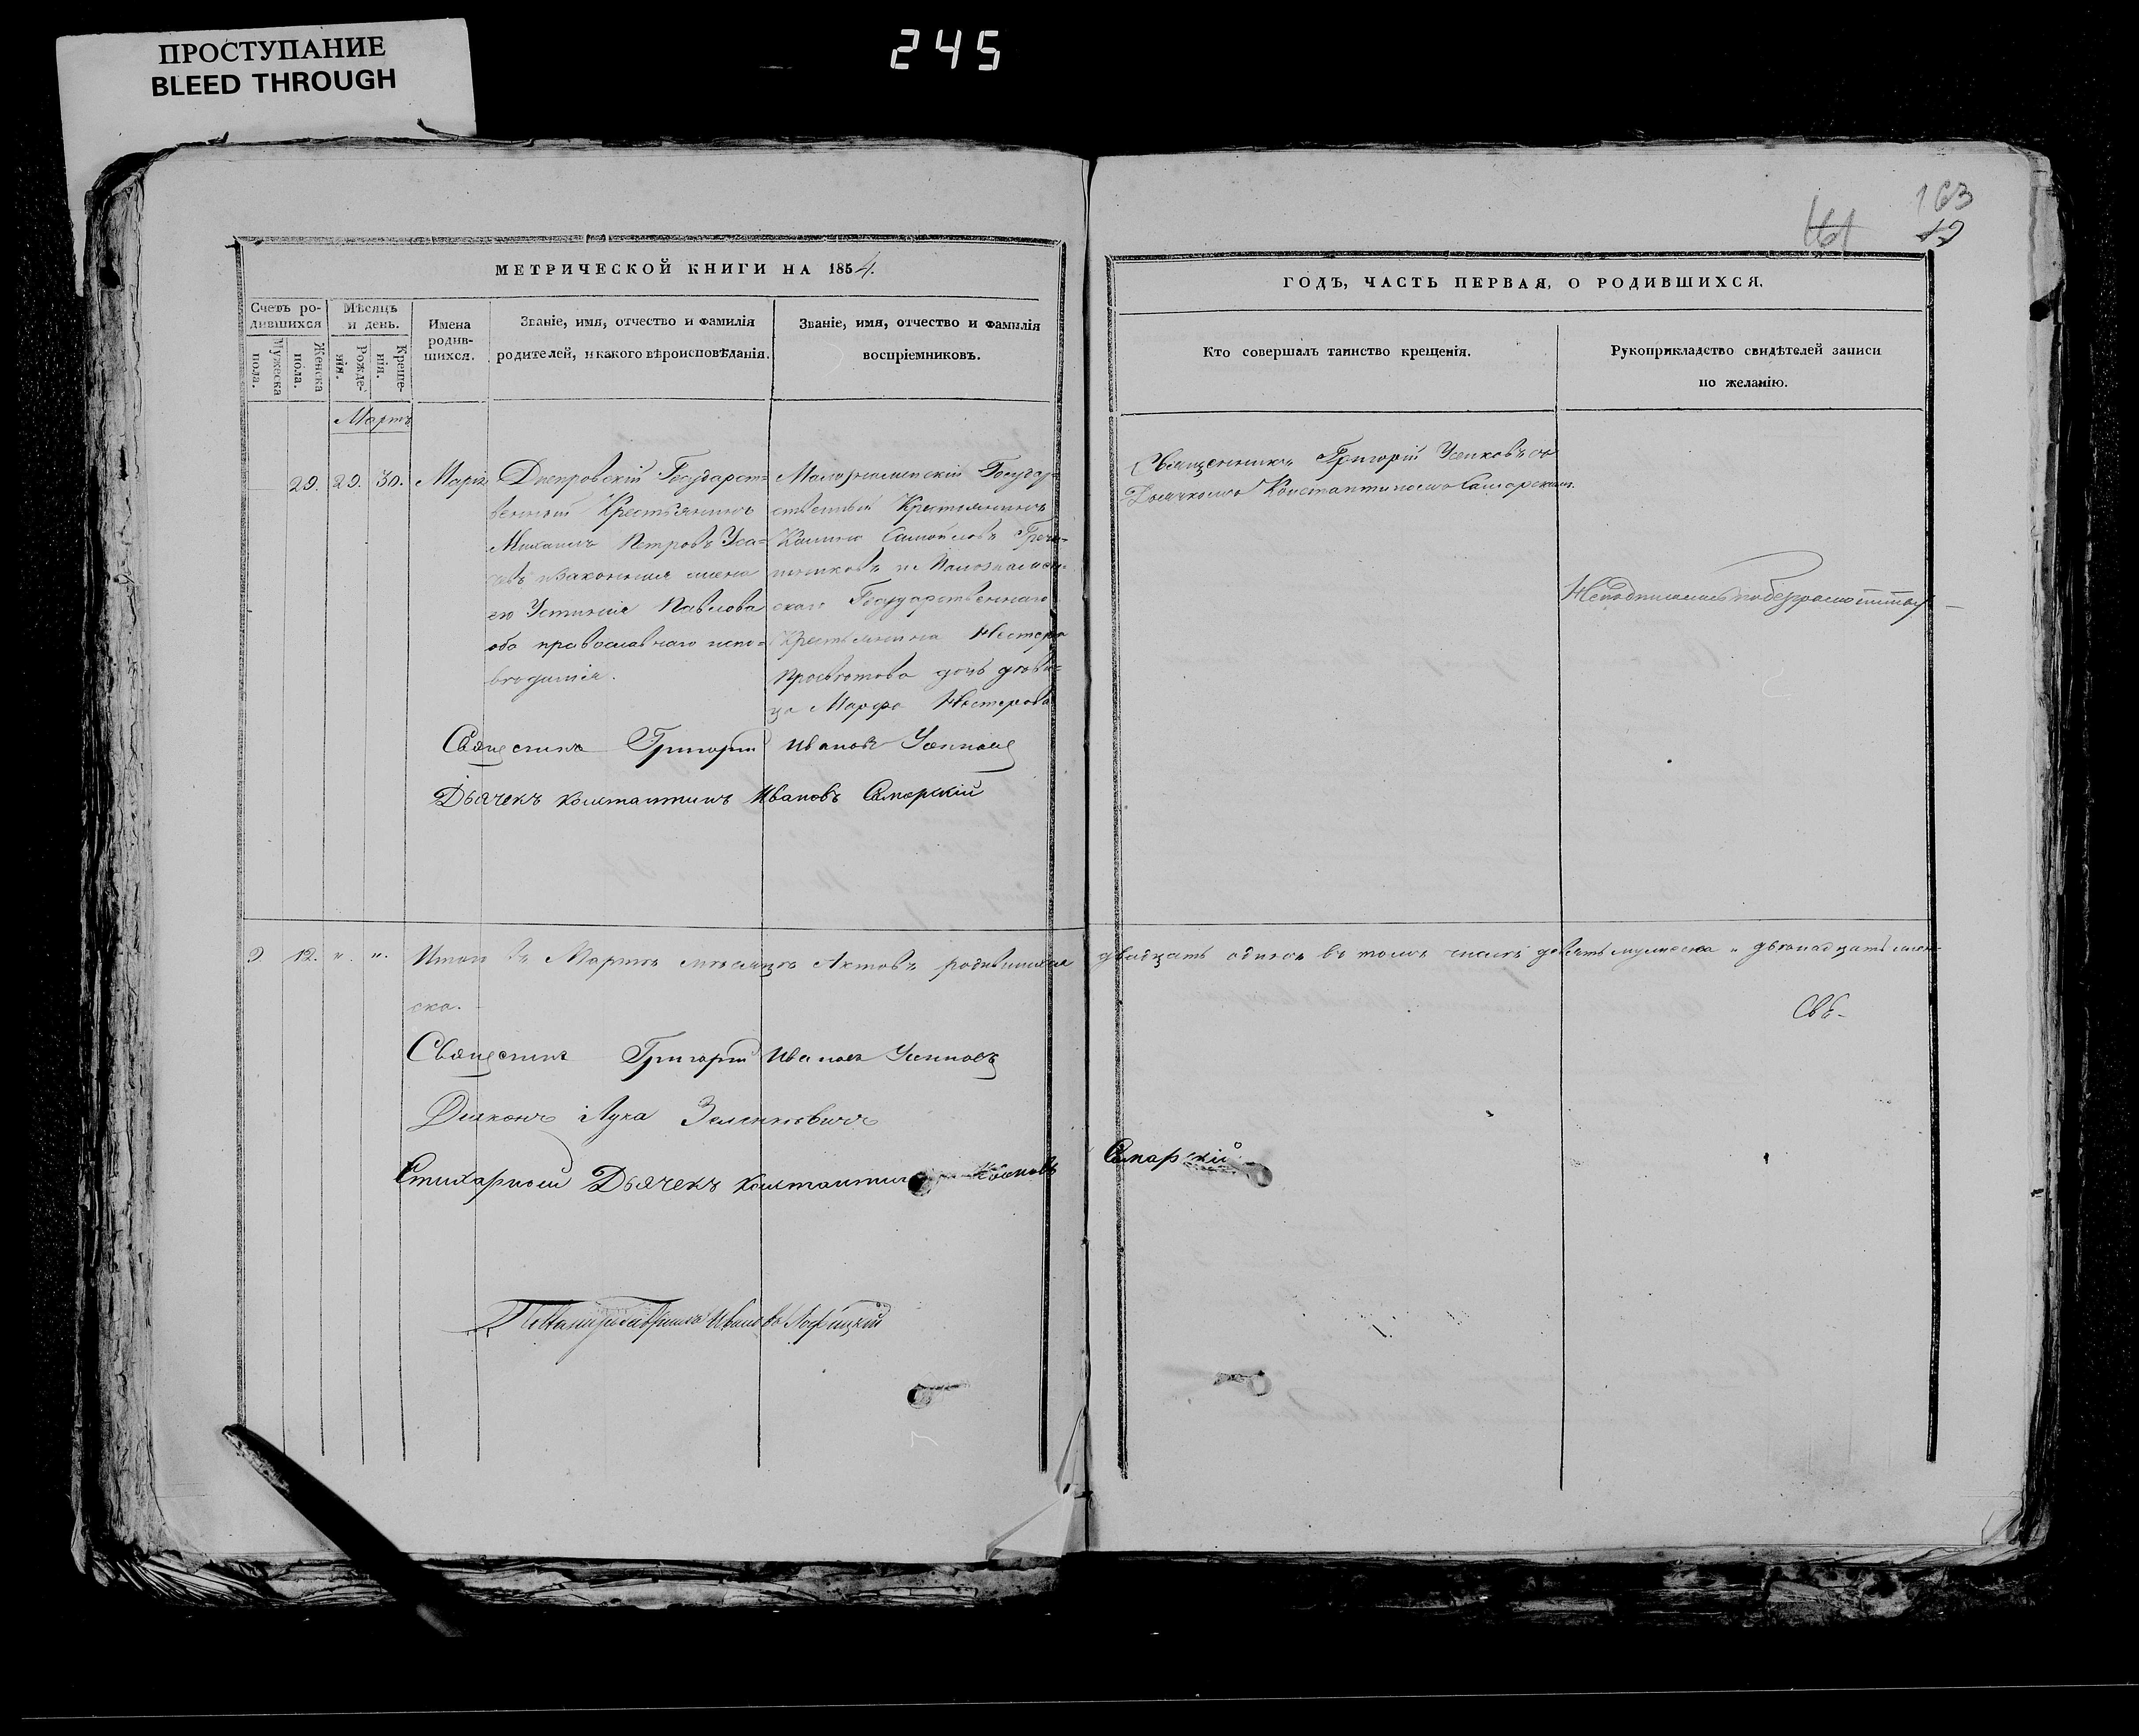 ПРОСТУПАНИЕ
BLEED THROUGH
245
163
161
19
МЕТРИЧЕСКОЙ КНИГИ НА 1854.
ГОДЪ, ЧАСТЬ ПЕРВАЯ, О РОДИВШИХСЯ.
Счетъ ро-
дившихся
Мужеска
пола.
Женска
пола.
Мѣсяцъ
и день.
Рожде-
нія.
Креще-
нія.
Имена
родив-
шихся.
Званіе, имя, отчество и фамилія
родителей, и какого вѣроисповѣданія.
Званіе, имя, отчество и фамилія
воспріемниковъ.
Кто совершалъ таинство крещенія.
Рукоприкладство свидѣтелей записи
по желанію.
Мартъ
29. 29. 30. Марія
Днепровскій Государст=
венный Крестьянинъ
Михаилъ Петровъ
и законная жена
его Устинія Павлова
оба православнаго испо-
вѣданія.
Государ-
ственный Крестьянинъ
Самойловъ
скаго Государственнаго
Крестьянина Нестера
дочь дѣви-
ца Марфа Нестерова
Священникъ Григорій со
Дьячкомъ Константиномъ Самарскимъ.
Неподписались по безграмотству
Священникъ Григорій Ивановъ
Дьячекъ Константинъ Ивановъ Самарскій
9 12. ". ". Итого въ Мартѣ мѣсяцѣ Актовъ родившихся двадцать одинъ въ томъ числѣ девять мужеска и двѣнадцать жен-
ска.
Свя-
Священникъ Григорій Ивановъ
Діаконъ Лука
Стихарный Дьячекъ Константинъ Ивановъ Самарскій
Пономарь Ивановъ